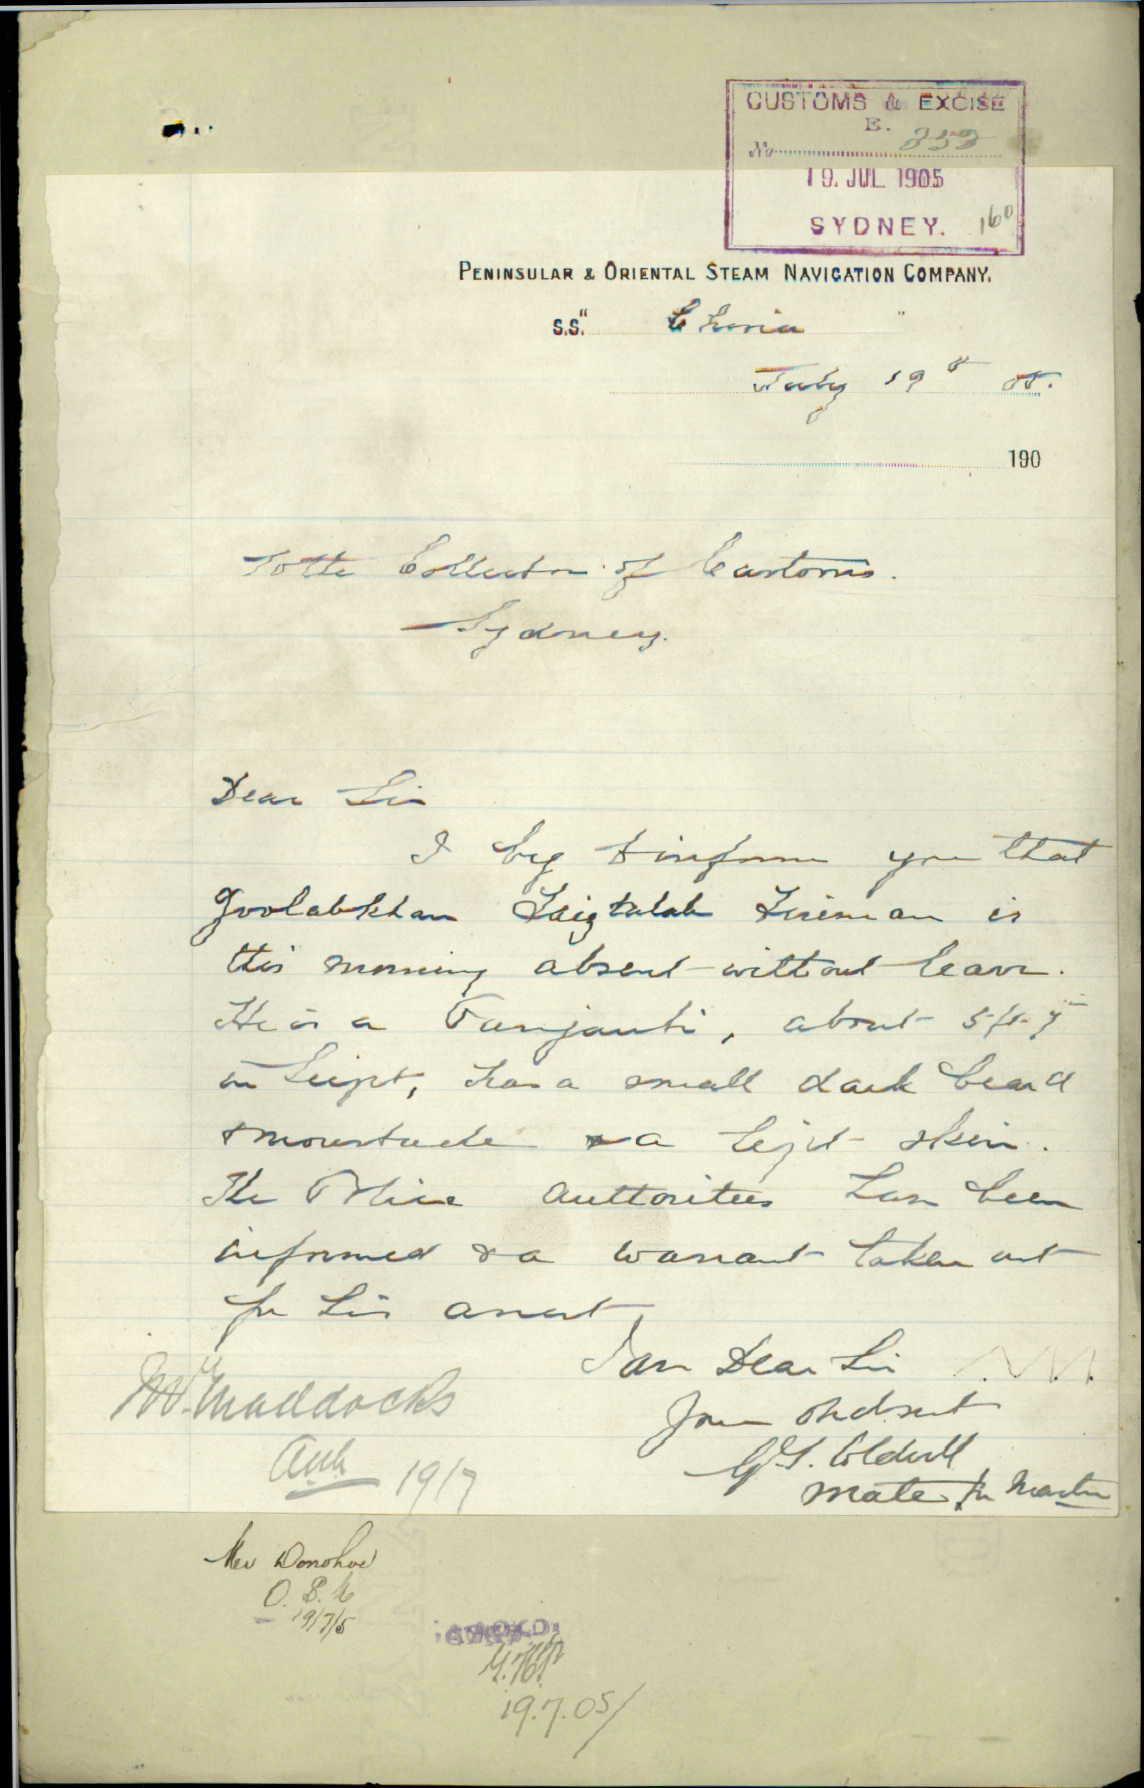 CUSTOMS & EXCISE
E.
No
19. JUL 1905
SYDNEY. 160
PENINSULAR & ORIENTAL STEAM NAVIGATION COMPANY.
S.S. " China "
July 19th 05.
190
To the Collector of Customs.
Sydney.
Dear Sir
I beg to inform you that
Goolabkhan Fireman is
this morning absent without leave.
He is a Punjaubi, about 5 ft 7 in
in heighth, has a small dark beard
& moustache & a light skin.
The Police authorities have been
informed & a warrant taken out
for his arrest,
I am Dear Sir
Your obed. servt
Mate for Master
Mr. Maddocks
19/7
Mr Donohoe
19/7/5
19.7.05/